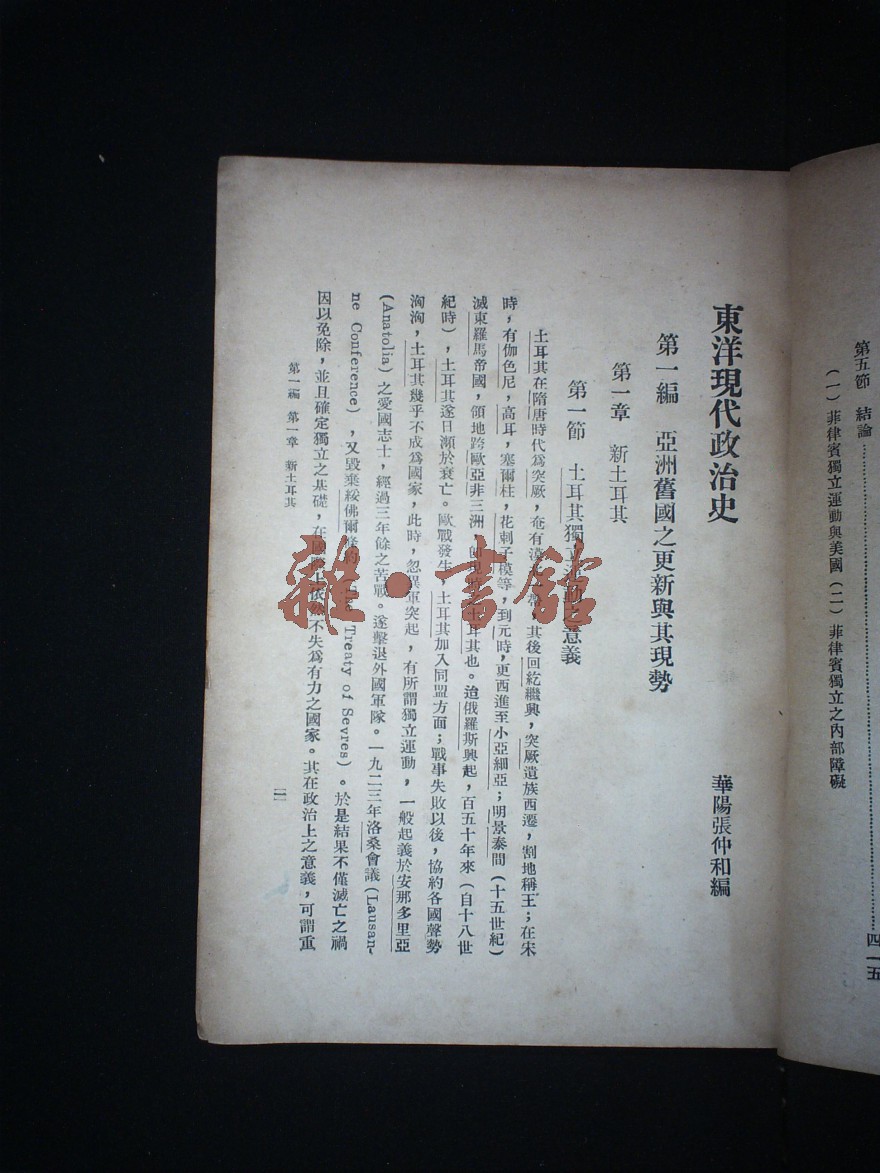 第五節 結論……………………四一五
(一)菲律賓獨立運動與美國(二)菲律賓獨立之內部障礙
東洋現代政治史
華陽張仲和編
第一編 亞洲舊國之更新與其現勢
第一章 新土耳其
第一節 土耳其獨立運動之意義
土耳其在隋唐時代爲突厥,奄有漠
其後回紇繼興,突厥遺族西遷,割地稱王;在宋
時,有伽色尼,高耳,塞爾柱,花剌子模等,到元時,更西進至小亞細亞;明景泰間(十五世紀)
滅東羅馬帝國,領地跨歐亞非三洲,卽現 土耳其也。迨俄羅斯興起,百五十年來(自十八世
紀時),土耳其遂日瀕於衰亡。歐戰發生,土耳其加入同盟方面;戰事失敗以後,協約各國聲勢
洶洶,土耳其幾乎不成爲國家,此時,忽異軍突起,有所謂獨立運動,一般起義於安那多里亞
(Anatolia)之愛國志士,經過三年餘之苦戰。遂擊退外國軍隊。一九二三年洛桑會議(Lausan-
ne Conference),又毀棄綏佛爾條約(The Treaty of Sevres)。於是結果不僅滅亡之禍
因以免除,並且確定獨立之基礎,在國際上依然不失爲有力之國家。其在政治上之意義,可謂重
第一編 第一章 新土耳其
雜·書館